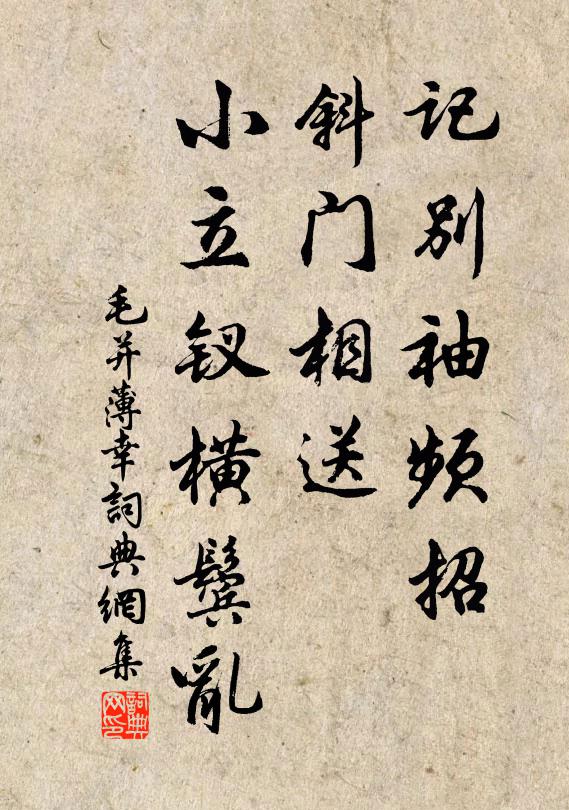 记别袖频招
斜门相送
小立钗横鬓亂
毛并薄幸詞典網集
詞典网印